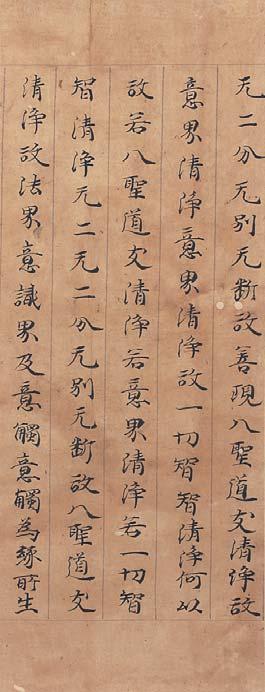 无二分无别无断故善現八聖道支清淨故
意界清淨意界清淨故一切智智清淨何以
故若八聖道支清淨若意界清淨若一切智
智清淨无二无二分无别无断故八聖道支
清淨故法界意識界及意觸意觸為緣所生